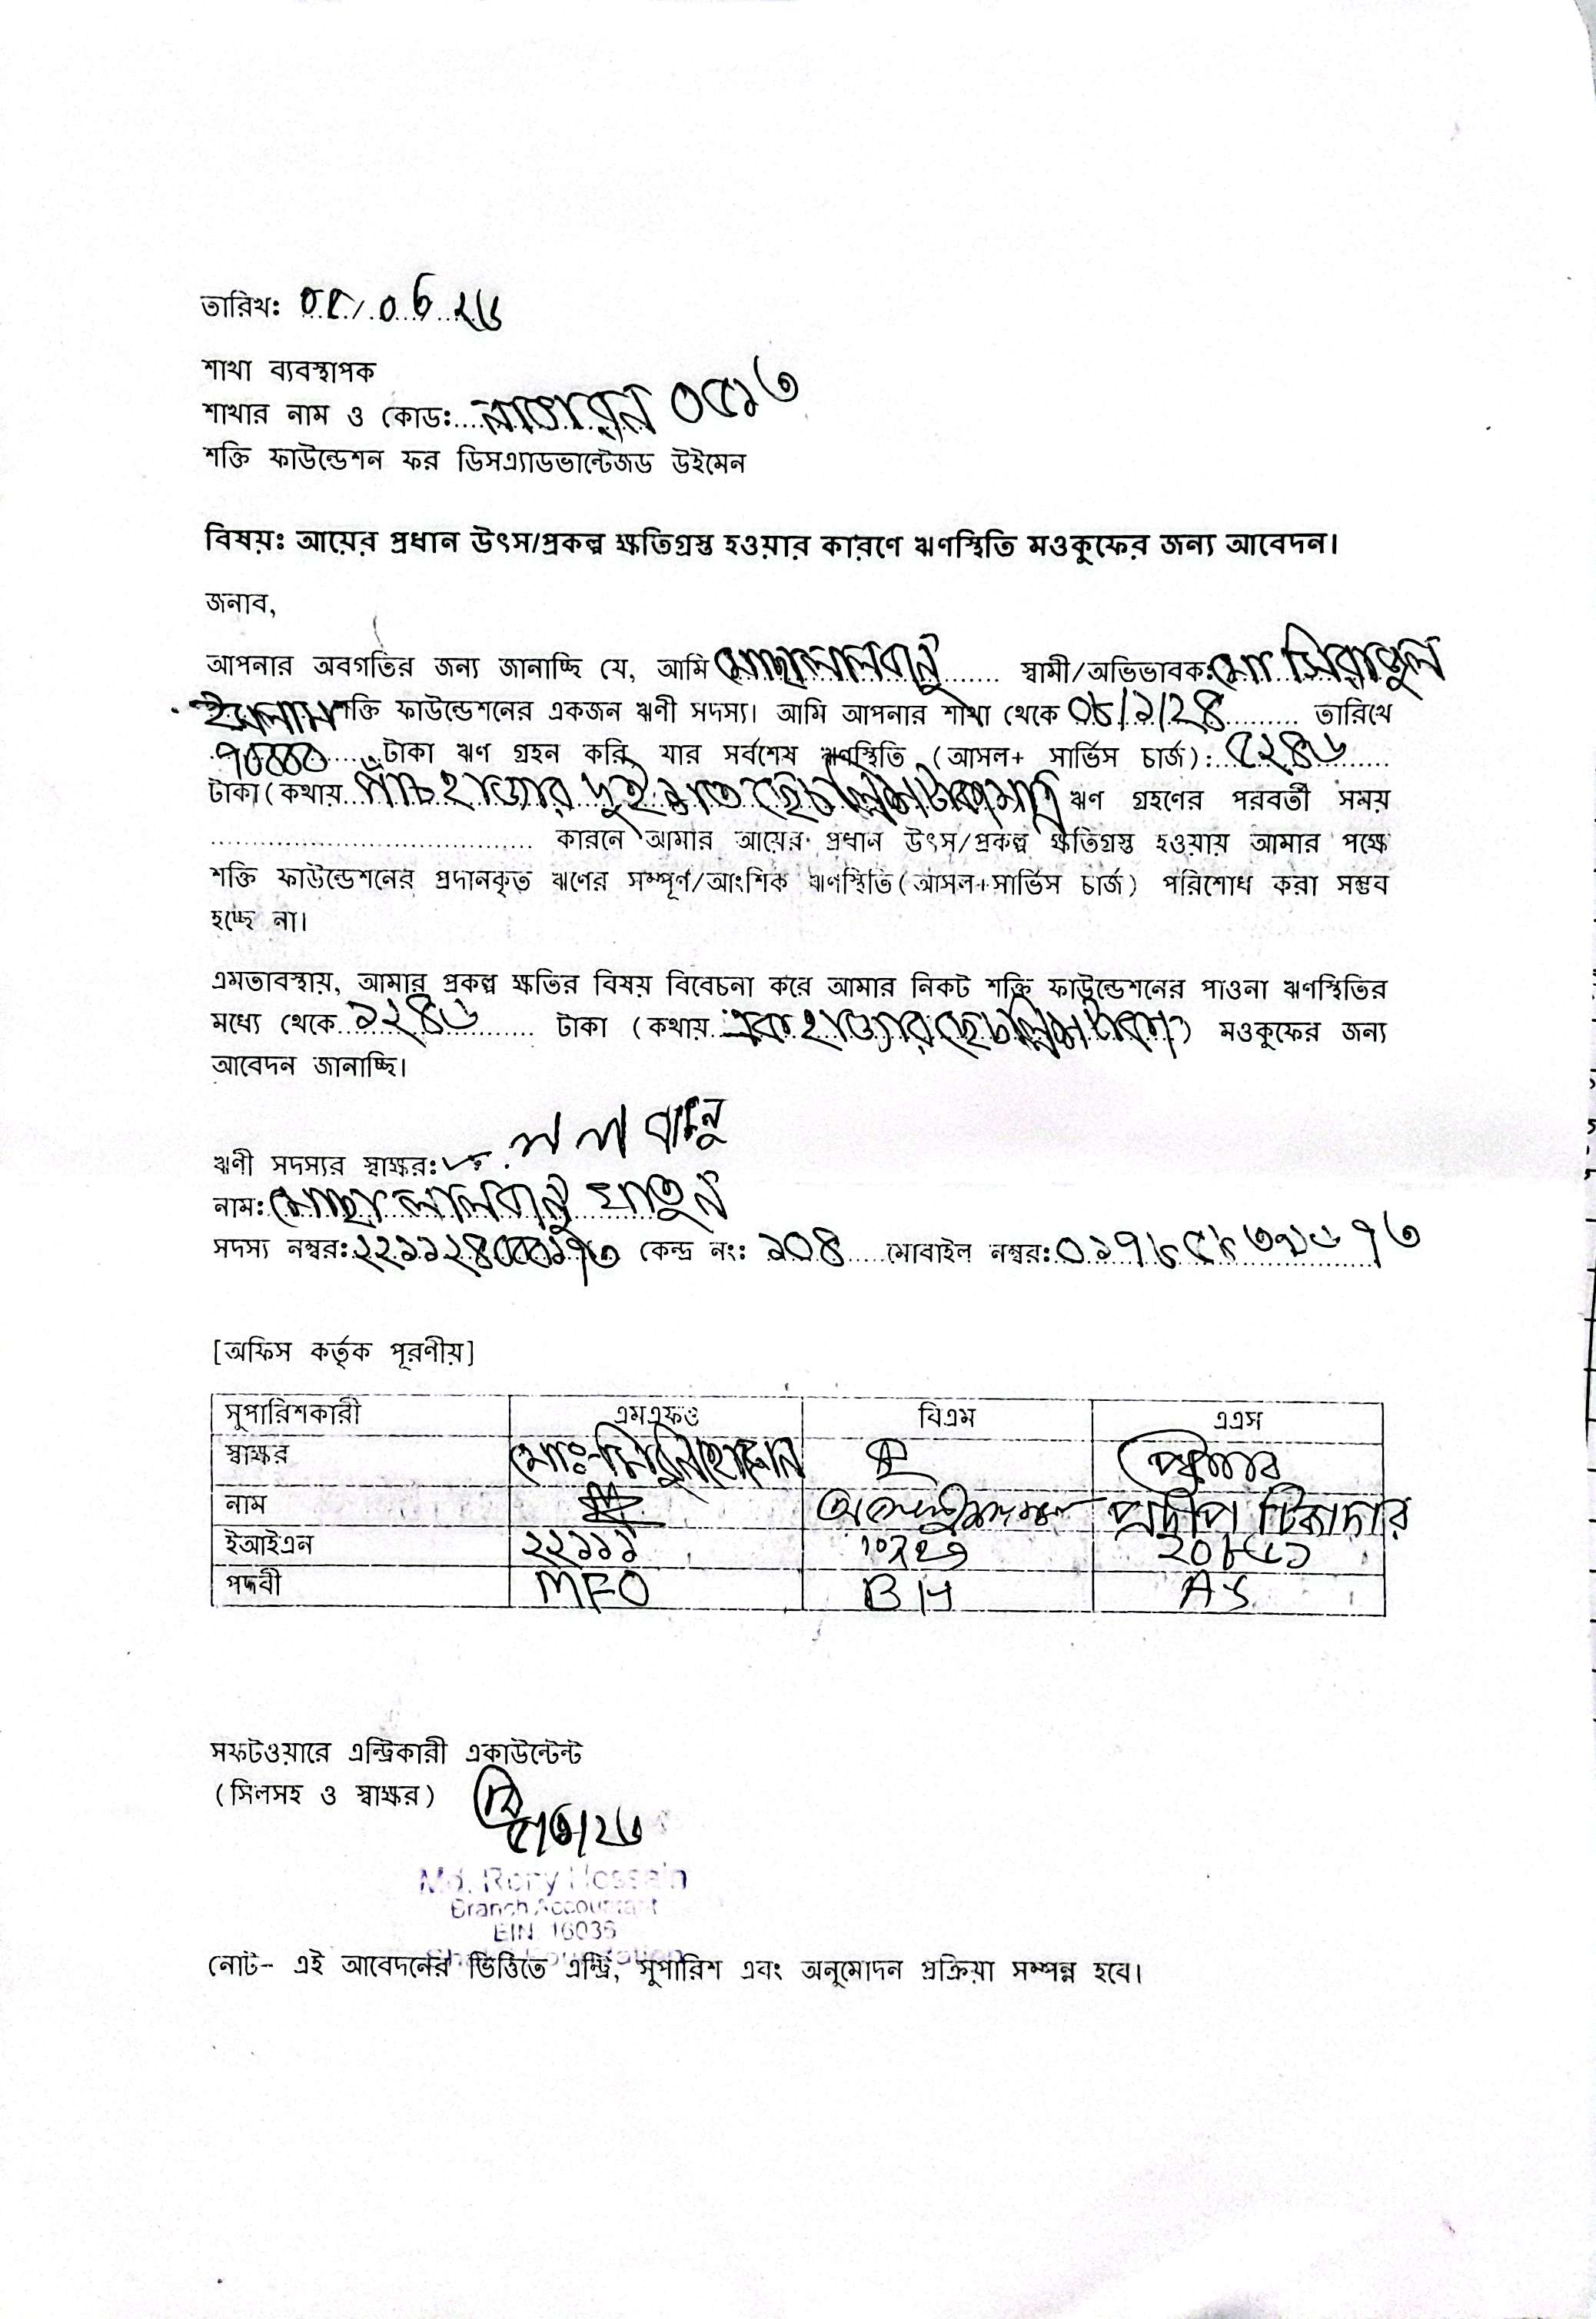 তারিখঃ ০৫/০৮/২৬
শাখা ব্যবস্থাপক
শাখার নাম ও কোডঃ ০৫১৩
শক্তি ফাউন্ডেশন ফর ডিসএ্যাডভান্টেজড উইমেন
বিষয়ঃ আয়ের প্রধান উৎস/প্রকল্প ক্ষতিগ্রস্ত হওয়ার কারণে ঋণস্থিতি মওকুফের জন্য আবেদন।
জনাব,
আপনার অবগতির জন্য জানাচ্ছি যে, আমি মোছাঃ লালবানু স্বামী/অভিভাবকঃ মোঃ সিরাজুল
ইসলাম শক্তি ফাউন্ডেশনের একজন ঋণী সদস্য। আমি আপনার শাখা থেকে ০৮/১/২৪ তারিখে
৭০০০০ টাকা ঋণ গ্রহন করি যার সর্বশেষ ঋণস্থিতি (আসল+ সার্ভিস চার্জ): ৫২৪৬
টাকা (কথায় পাঁচ হাজার দুই শত ছেচল্লিশ টাকা মাত্র ঋণ গ্রহণের পরবর্তী সময়
কারনে আমার আয়ের প্রধান উৎস/প্রকল্প ক্ষতিগ্রস্ত হওয়ায় আমার পক্ষে
শক্তি ফাউন্ডেশনের প্রদানকৃত ঋণের সম্পূর্ণ/আংশিক ঋণস্থিতি(আসল+সার্ভিস চার্জ) পরিশোধ করা সম্ভব
হচ্ছে না।
এমতাবস্থায়, আমার প্রকল্প ক্ষতির বিষয় বিবেচনা করে আমার নিকট শক্তি ফাউন্ডেশনের পাওনা ঋণস্থিতির
মধ্যে থেকে ১২৪৬ টাকা (কথায় এক হাজার ছেচল্লিশ টাকা) মওকুফের জন্য
আবেদন জানাচ্ছি।
ঋণী সদস্যর স্বাক্ষরঃ লাল বানু
নামঃ মোছাঃ লালবানু খাতুন
সদস্য নম্বরঃ ২২১১২৪০০০১৭৩ কেন্দ্র নংঃ ১০৪ মোবাইল নম্বরঃ
[অফিস কর্তৃক পূরণীয়]
সুপারিশকারী এমএফও বিএম এএস
স্বাক্ষর
নাম প্রদীপ টিকাদার
ইআইএন ২২১১১ ২০৮৫১
পদবী MFO BM AS
সফটওয়ারে এন্ট্রিকারী একাউন্টেন্ট
(সিলসহ ও স্বাক্ষর)
Md. Rony Hossain
Branch Accountant
EIN 16036
নোট- এই আবেদনের ভিত্তিতে এন্ট্রি, সুপারিশ এবং অনুমোদন প্রক্রিয়া সম্পন্ন হবে।